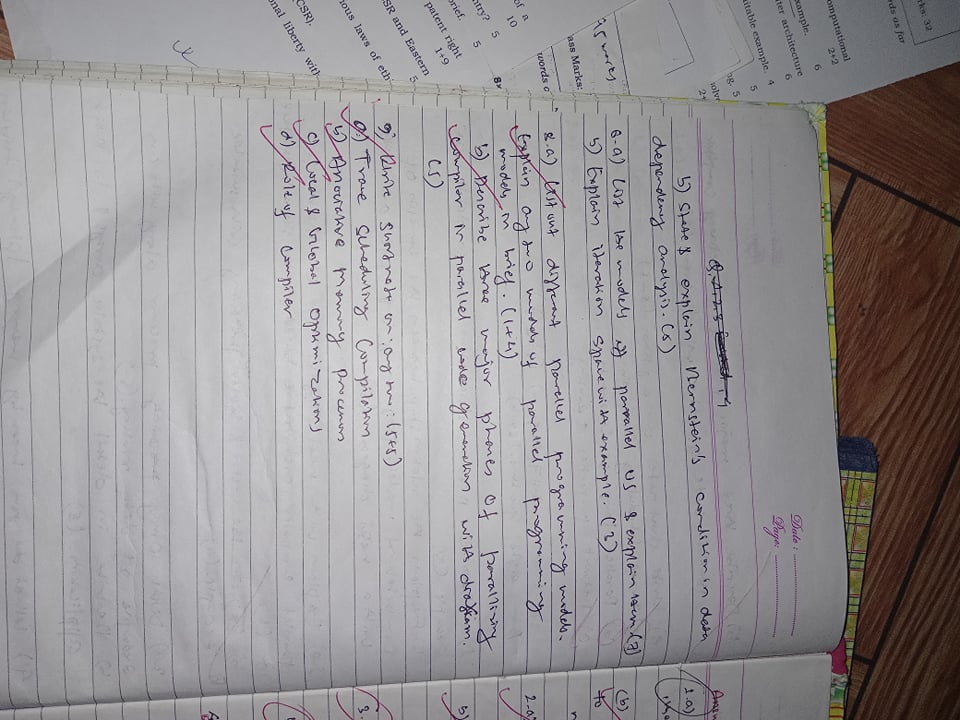 rks: 32
rds as far
omputational
2+2
xample. 6
ter architecture
6
itable example. 4
5
ng. 5
olve
2+
ass Marks:
words
of a
10
ntry? 5
8x
rief. 5
patent right
1+9
SR and Eastern
5
ious laws of eth
CSR).
onal liberty with
Date :
Page:
b) State & explain Bernstein's condition in data
dependency analysis. (5)
6.a) List the models of parallel OS & explain them. (7)
b) Explain iteration space with example. (3)
8.a) List out different parallel programming models.
Explain any two models of parallel programming
models in brief. (1+4)
b) Describe three major phases of parallising
compiler in parallel code generation with diagram.
(5)
9) Write short note on: any two: (5+5)
a) Trace Scheduling Compilation
b) Associative Memory Processors
c) Local & Global Optimizations
d) Role of Compiler
1.a)
(b)
to
2.a)
b)
3.